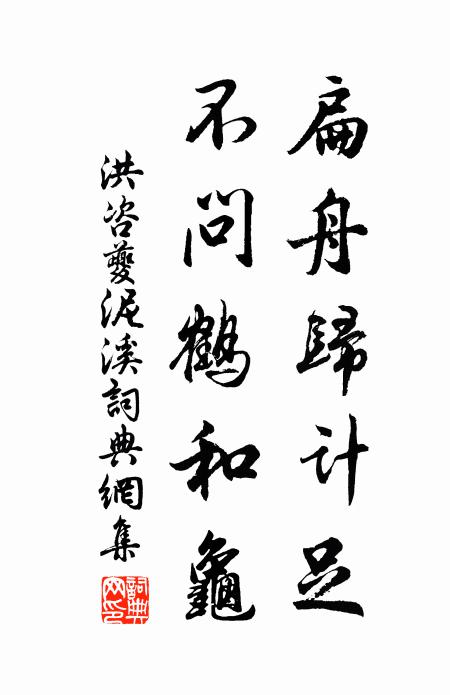 扁舟歸计足
不问鶴和龜
洪咨夔泥溪詞典網集
詞典网印